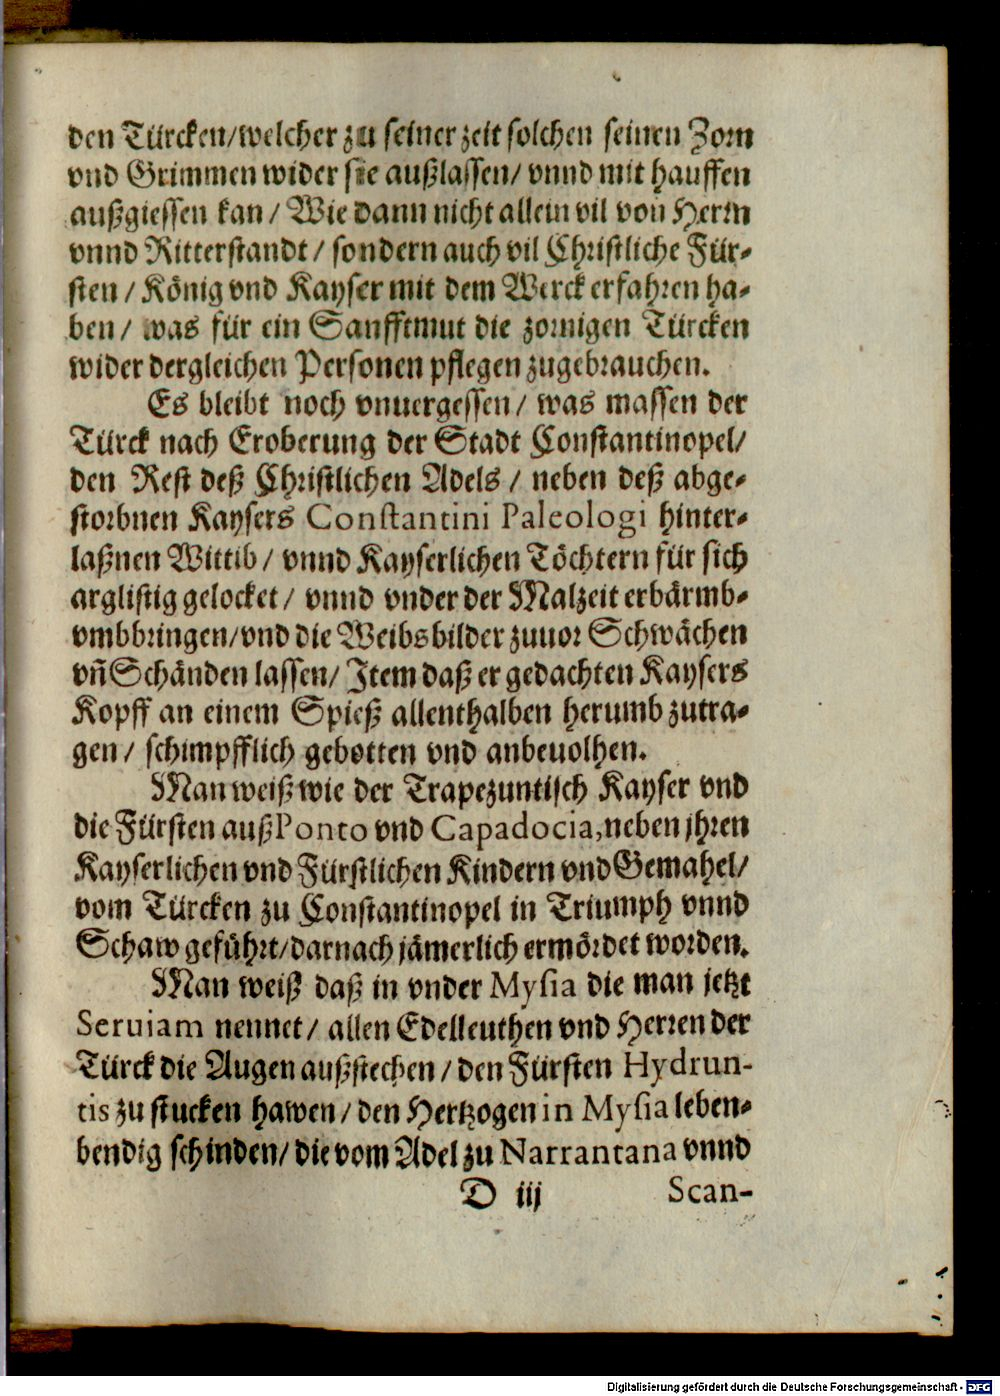 den Türcken/welcher zu seiner zeit solchen seinen Zorn
vnd Grimmen wider sie außlassen/ vnnd mit hauffen
außgiessen kan/ Wie dann nicht allein vil von Herrn
vnnd Ritterstandt/ sondern auch vil Christliche Für-
sten/ König vnd Kayser mit dem Werck erfahren ha-
ben/ was für ein Sanfftmut die zornigen Türcken
wider dergleichen Personen pflegen zugebrauchen.
Es bleibt noch vnuergessen/ was massen der
Türck nach Eroberung der Stadt Constantinopel/
den Rest deß Christlichen Adels/ neben deß abge-
storbnen Kaysers Constantini Paleologi hinter-
laßnen Wittib/ vnnd Kayserlichen Töchtern für sich
arglistig gelocket/ vnnd vnder der Malzeit erbärmb-
vmbbringen/vnd die Weibsbilder zuuor Schwächen
vñ Schänden lassen/ Item daß er gedachten Kaysers
Kopff an einem Spieß allenthalben herumb zutra-
gen/ schimpfflich gebotten vnd anbeuolhen.
Man weiß wie der Trapezuntisch Kayser vnd
die Fürsten auß Ponto vnd Capadocia, neben jhren
Kayserlichen vnd Fürstlichen Kindern vnd Gemahel/
vom Türcken zu Constantinopel in Triumph vnnd
Schaw geführt/darnach jämerlich ermördet worden.
Man weiß daß in vnder Mysia die man jetzt
Seruiam nennet/ allen Edelleuthen vnd Herren der
Türck die Augen außstechen/ den Fürsten Hydrun-
tis zu stucken hawen/ den Hertzogen in Mysia leben-
bendig schinden/ die vom Adel zu Narrantana vnnd
D iij Scan-
Digitalisierung gefördert durch die Deutsche Forschungsgemeinschaft - DFG